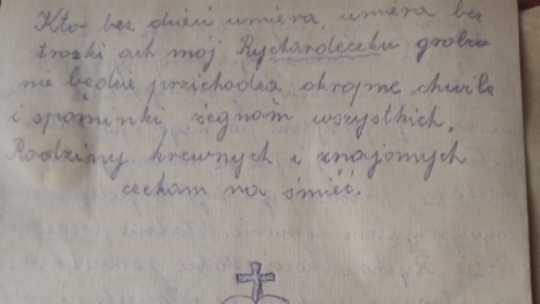 Kto bez dzieci umiera, umera bez
troski ach moj Rychardeczku grobu
nie będzie przichodza okropne chwile
i spominki żegnam wszystkich.
Rodziny krewnych i znajomych
czekam na śmieć.